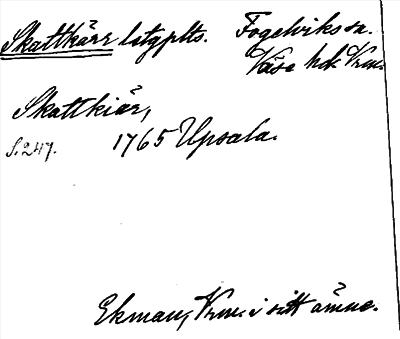 Skattkärr lstgplts. Fogelviks sn.
Väse hd. Vrm.
Skattkiär,
S. 247. 1765 Upsala.
Ekman, Vrm. i sitt ämne.